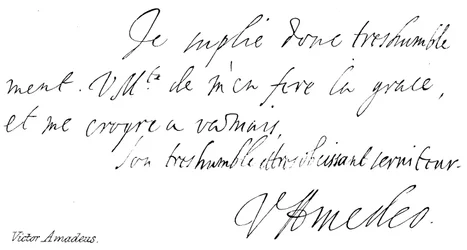 Je suplie donc treshumble
ment. VM.te de m'en fere la grace,
et me croyre a
son treshumble et tres obeissant serviteur.
VAmedeo.
Victor Amadeus.